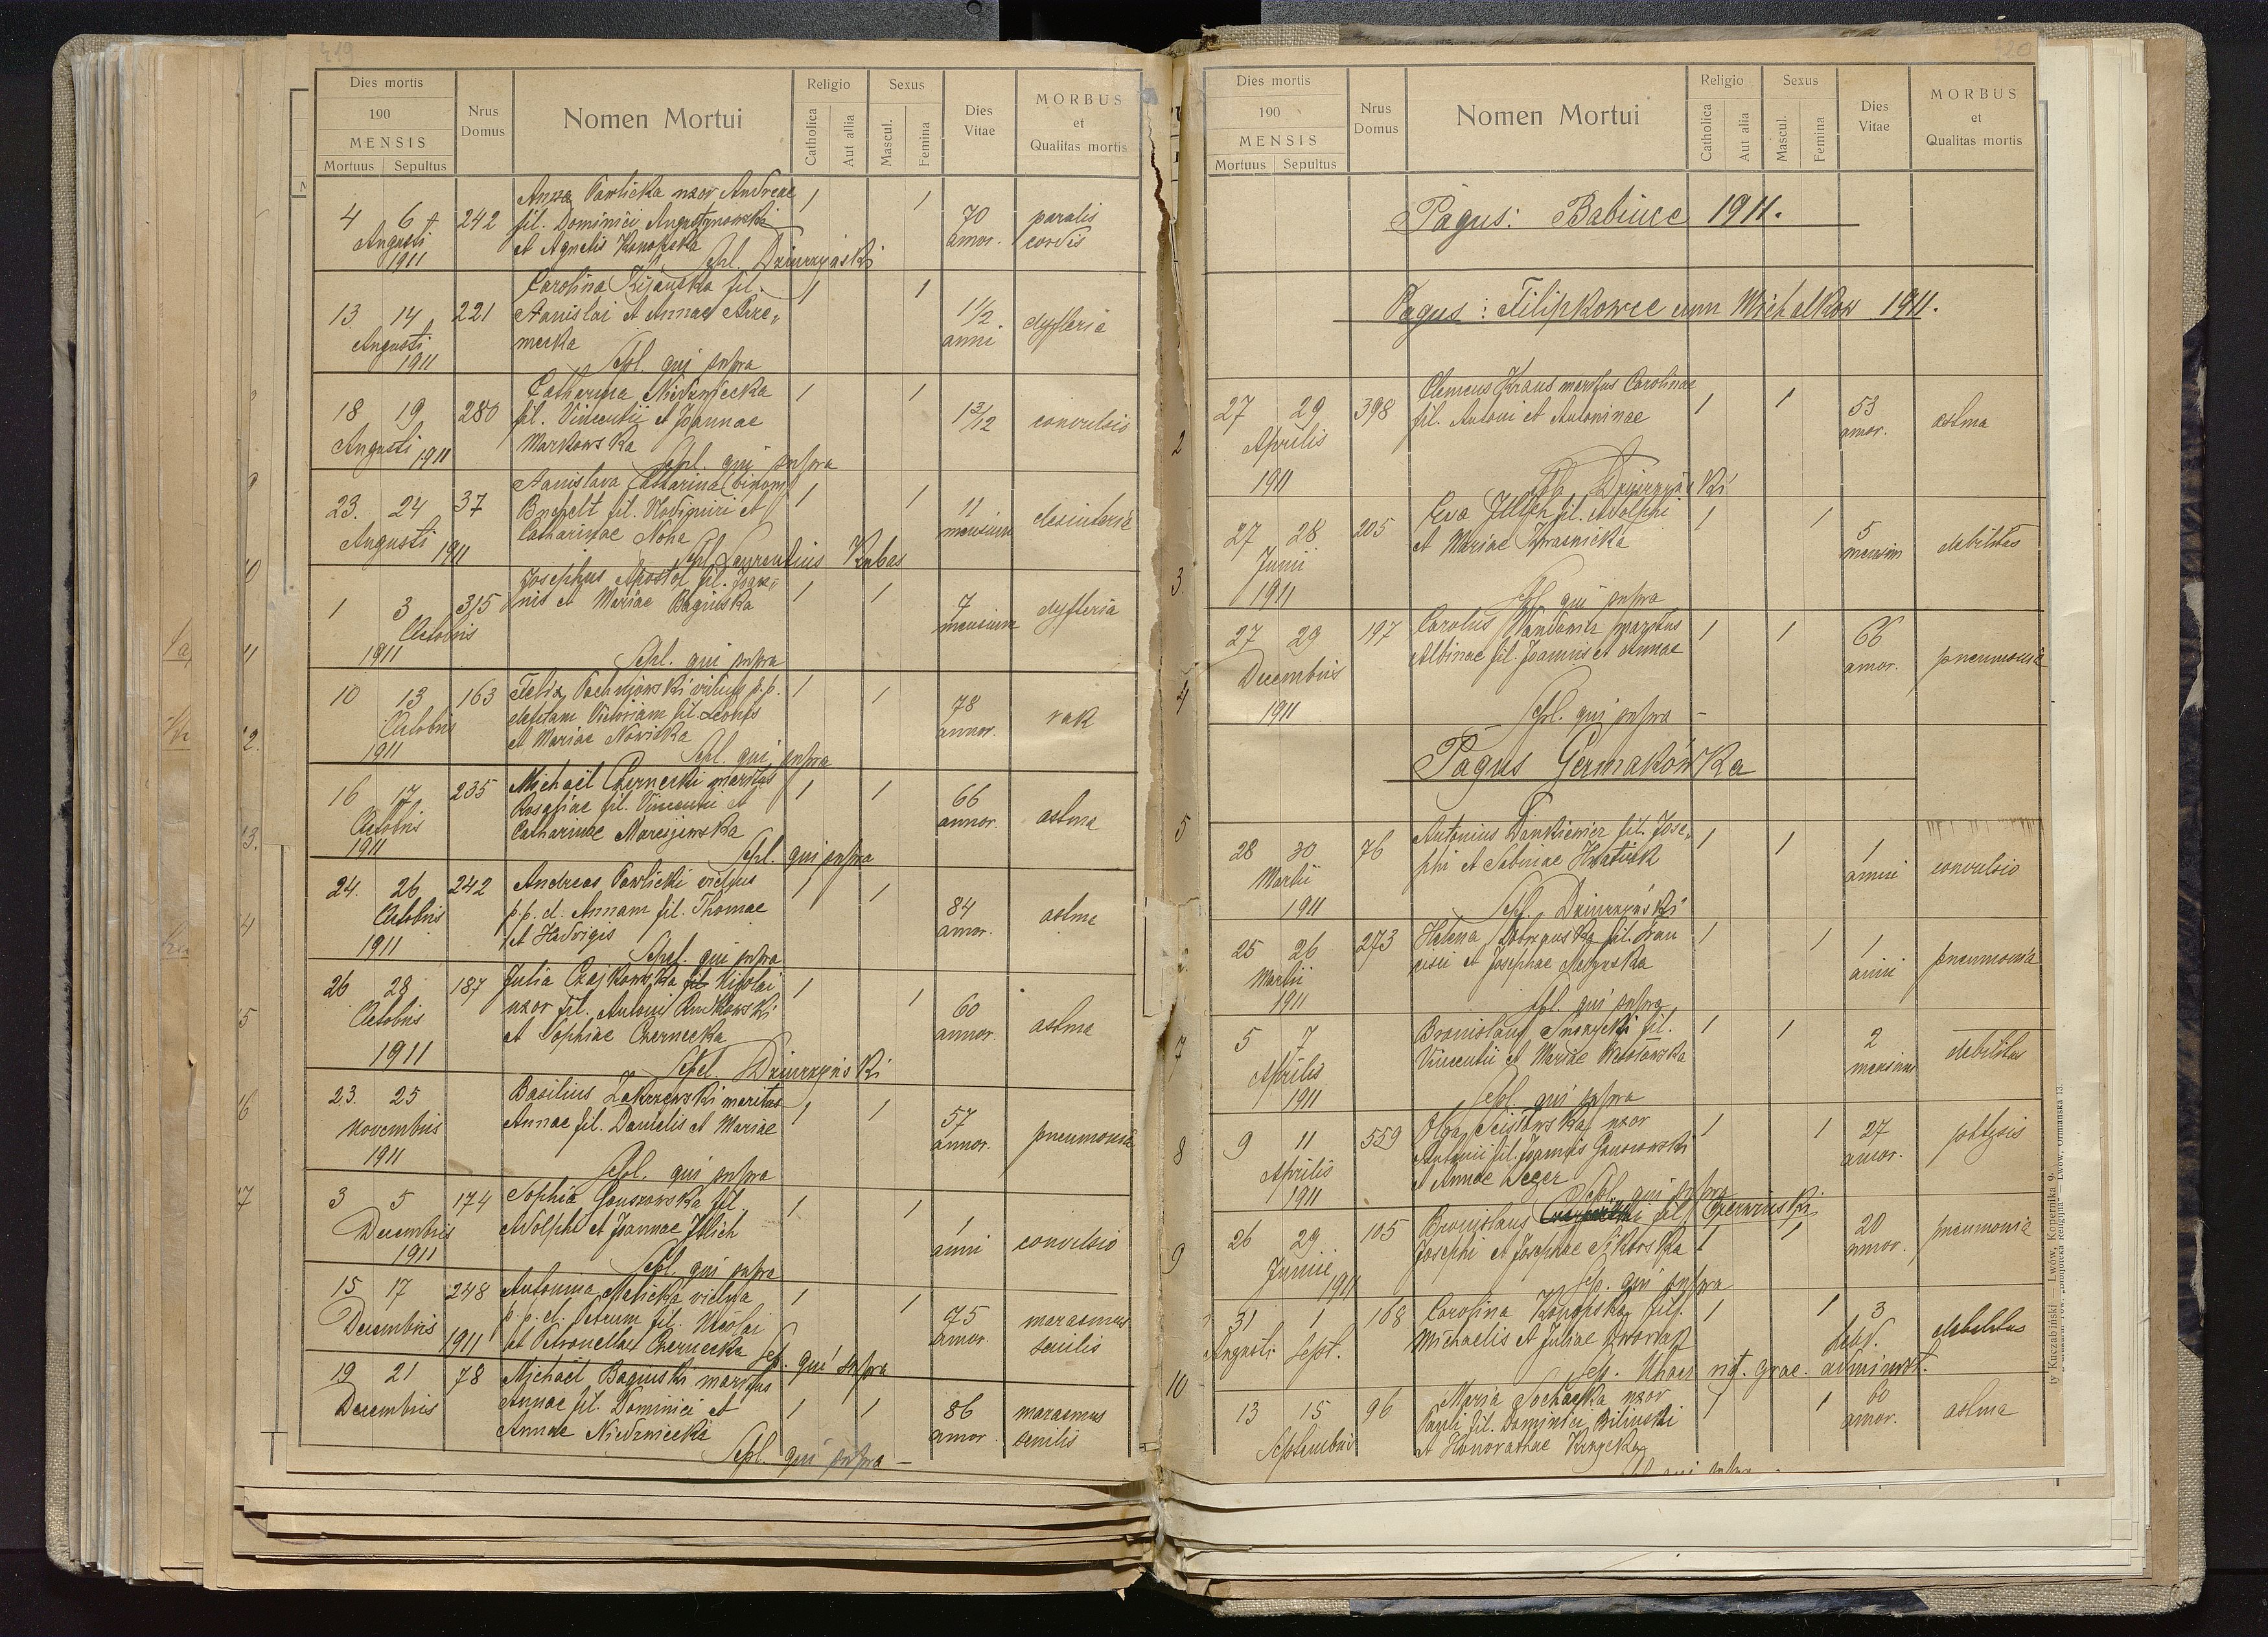 419
Dies mortis
190
MENSIS
Mortuus Sepultus
Nrus Domus
Nomen Mortui
Religio
Catholica Aut allia
Sexus
Mascul. Femina
Dies Vitae
MORBUS et Qualitas mortis
Anna Pawlicka uxor Andreae
4 6 242 fil. Dominici Augustynowski 1 1 70 paralis
Augusti et Agnetis Konopska annor. cordis
1911 Sepl. Dziurzyński
Carolina Kijanska fil. 1 1
13 14 221 Stanislai et Annae Prze- 1 1/2 dyfteria
Augusti mecka anni
1911 Sepl. qui supra
Catharina Niedzwiecka 1 1
18 19 280 fil. Vincentii et Joannae 13/12 convulsio
Augusti 1911 Markowska
Sepl. qui supra
Stanislava Catharina (binom) 1 1
23. 24 37 fil. Wlodimiri et 11 desinteria
Augusti 1911 Catharinae Noha mensium
Sepl. Laurentius Kubas
Josephus Apostol fil. Joan-
1 3 315 nis et Mariae Baginska 1 1 7 dyfteria
Octobris mensium
1911 Sepl. qui supra
10 13 163 Felix viduus p. p. 1 1 78 rak
Octobris defctam Victoriam fil. Leonis annor.
1911 et Mariae Nowicka
Sepl. qui supra
16 17 235 Michaël Czernecki maritus 1 1 66 astma
Octobris Rosaliae fil. Vincentii et annor.
1911 Catharinae
Sepl. qui supra
24. 26 242 Andreas Pawlicki viduus 1 1 84 astma
Octobris p. p. d. Annam fil. Thomae annor.
1911 et Hedvigis
Sepl. qui supra
26 28 187 Julia Czajkowska fil. Nicolai 1 1 60 astma
Octobris uxor fil. Antonii annor.
1911 et Sophiae Czernecka
Sepl. Dziurzyński
23. 25 Basilius Zakrzewski maritus 1 1 57 pneumonia
Novembris Annae fil. Danielis et Mariae annor.
1911 Sepl. qui supra
3 5 174 Sophia Gonszowska fil. 1 1 1 convulsio
Decembris Adolphi et Joannae Illich anni
1911 Sepl. qui supra
15 17 248 Antonina Malicka vidua 1 1 75 marasmus
Decembris p. p. d. Petrum fil. Nicolai annor. senilis
1911 et Petronellae Czernecka Sep. qui supra
19 21 78 Michaël Baginski maritus 1 1 86 marasmus
Decembris Annae fil. Dominici et annor. senilis
Annae Niedzwiecki
Sepl. qui supra –
420
Dies mortis
190
MENSIS
Mortuus Sepultus
Nrus Domus
Nomen Mortui
Religio
Catholica Aut alia
Sexus
Mascul. Femina
Dies Vitae
MORBUS et Qualitas mortis
Pagus: Babince 1911.
Pagus: Filipkowce cum Michalkow 1911.
2 27 29 398 Clemens Kraus maritus Carolinae 1 1 53 astma
Aprilis fil. Antoni et Antoninae annor.
1911 Sepl. Dziurzyński
3. 27 28 205 Eva Illich fil. Adolphi 1 1 5 debilitas
Junii et Mariae Krasnicka mensium
1911 Sepl. qui supra
4 27 29 197 Carolus maritus 1 1 66 pneumonia
Decembris Albinae fil. Joannis et Annae annor.
1911 Sepl. qui supra –
Pagus Germakówka
5 28 30 76 Antonius Dankiewicz fil. Jose- 1 1 1 convulsio
Martii phi et Sabinae anni
1911 Sepl. Dziurzyński
25 26 273 Helena fil. Fran 1 1 1 pneumonia
Martii cisci et Josephae anni
1911 Sepl. qui supra
7 5 7 Bronislaus fil. 1 1 2 debilitas
Aprilis Vincentii et Mariae mensium
1911 Sepl. qui supra
8 9 11 559 Olga uxor 1 1 27 phtysis
Aprilis Antonii fil. Joannis Gonszowski annor.
1911 et Annae Seger
Sepl. qui supra
9 26 29 105 Bronislaus fil. Czerwinski 1 1 20 pneumonia
Junii Josephi et Josephae Sikorska annor.
1911 Sep. qui supra
31 1 168 Carolina fil. 1 1 3 debilitas
Augusti Sept. Michaelis et Juliae hebd.
Sep. rit. grae. administ.
10 13 15 96 Maria Sochacka uxor 1 1 60 astma
Septembris Pauli fil. Dominici Bilinski annor.
et Honorathae
Sepl. qui supra
Lwów, Kopernika 9.
Lwów, Ormiańska 13.